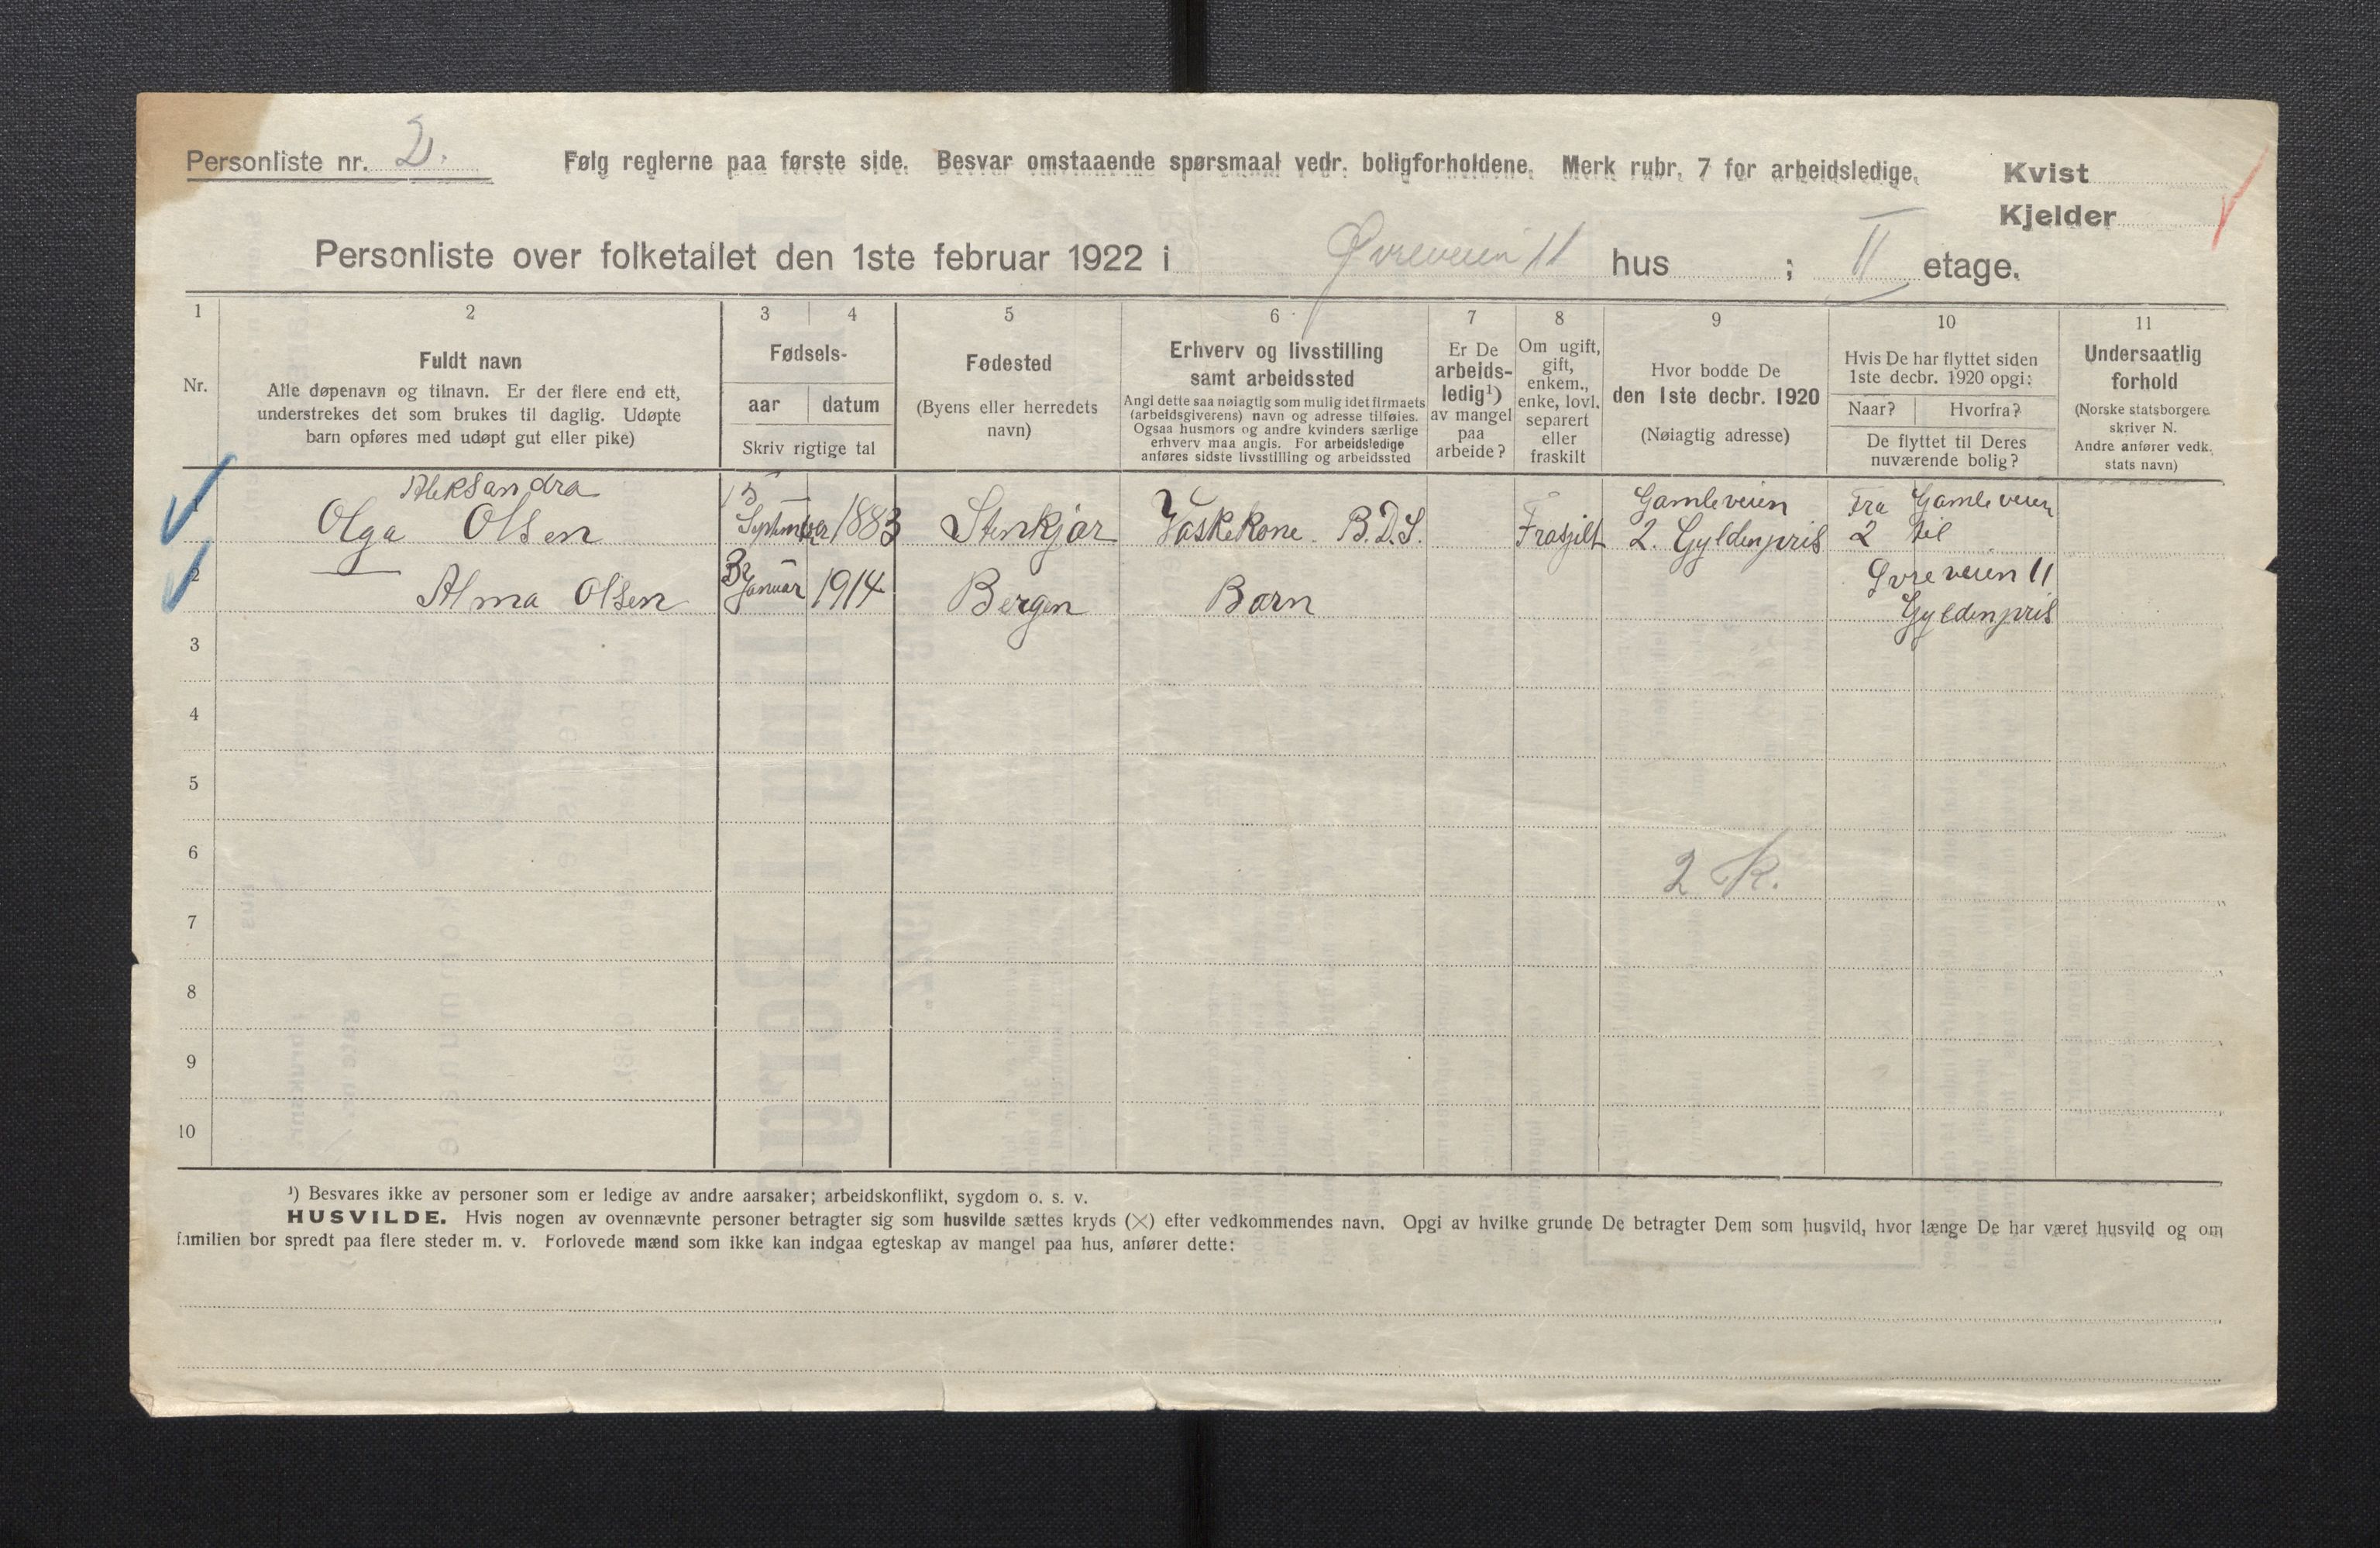 Personliste nr. 2. Følg reglerne paa første side. Besvar omstaaende spørsmaal vedr. boligforholdene. Merk rubr. 7 for arbeidsledige. Kvist
Kjelder
Personliste over folketallet den 1ste februar 1922 i Øvreveien 11 hus ; II etage.
1 2 3 4 5 6 7 8 9 10 11
Nr.
Fuldt navn
Alle døpenavn og tilnavn. Er der flere end ett,
understrekes det som brukes til daglig. Udøpte
barn opføres med udøpt gut eller pike)
Fødsels-
aar datum
Skriv rigtige tal
Fødested
(Byens eller herredets
navn)
Erhverv og livsstilling
samt arbeidssted
Angi dette saa nøiagtig som mulig idet firmaets
(arbeidsgiverens) navn og adresse tilføies.
Ogsaa husmors og andre kvinders særlige
erhverv maa angis. For arbeidsledige
anføres sidste livsstilling og arbeidssted
Er De
arbeids-
ledig¹)
av mangel
paa
arbeide?
Om ugift,
gift,
enkem.,
enke, lovl.
separert
eller
fraskilt
Hvor bodde De
den 1ste decbr. 1920
(Nøiagtig adresse)
Hvis De har flyttet siden
1ste decbr. 1920 opgi:
Naar? Hvorfra?
De flyttet til Deres
nuværende bolig?
Undersaatlig
forhold
(Norske statsborgere
skriver N.
Andre anfører vedk.
stats navn)
Aleksandra
Olga Olsen September 1883 Stenkjær Vaskekone. B.D.S. Frasjilt
Gamleveien
2. Gyldenpris
Fra Gamleveien
2 til
Øvreveien 11
Gyldenpris
2 Alma Olsen Januar 1914 Bergen Barn
3
4
5
6 2 K.
7
8
9
10
¹) Besvares ikke av personer som er ledige av andre aarsaker; arbeidskonflikt, sygdom o. s. v.
HUSVILDE. Hvis nogen av ovennævnte personer betragter sig som husvilde sættes kryds (×) efter vedkommendes navn. Opgi av hvilke grunde De betragter Dem som husvild, hvor længe De har været husvild og om
familien bor spredt paa flere steder m. v. Forlovede mænd som ikke kan indgaa egteskap av mangel paa hus, anfører dette: